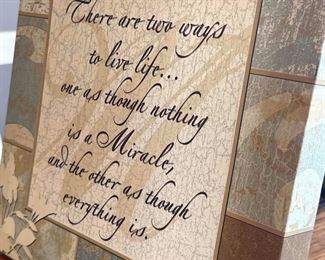 There are two ways
to live life...
one as though nothing
is a Miracle,
and the other as though
everything is.